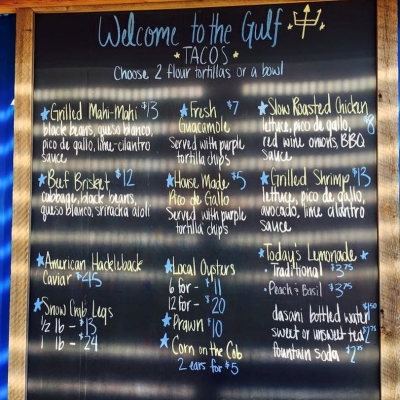 Welcome to the Gulf
TACOS
Choose 2 flour tortillas or a bowl
Grilled Mahi-Mahi $13
black beans, queso blanco,
pico de gallo, lime-cilantro
sauce
Beef Brisket $12
cabbage, black beans,
queso blanco, sriracha aioli
American Hackleback
Caviar $45
Snow Crab Legs
1/2 lb - $13
1 lb - $24
Fresh $7
Guacamole
Served with purple
tortilla chips
House Made $5
Pico de Gallo
Served with purple
tortilla chips
Local Oysters
6 for - $11
12 for - $20
Prawn $10
Corn on the Cob
2 ears for $5
Slow Roasted Chicken
lettuce, pico de gallo, $8
red wine onions, BBQ
sauce
Grilled Shrimp $13
lettuce, pico de gallo,
avocado, lime cilantro
sauce
Today's Lemonade
Traditional $3.75
Peach & Basil $3.75
dasani bottled water $1.50
sweet or unsweet tea $2.75
fountain soda $2.75